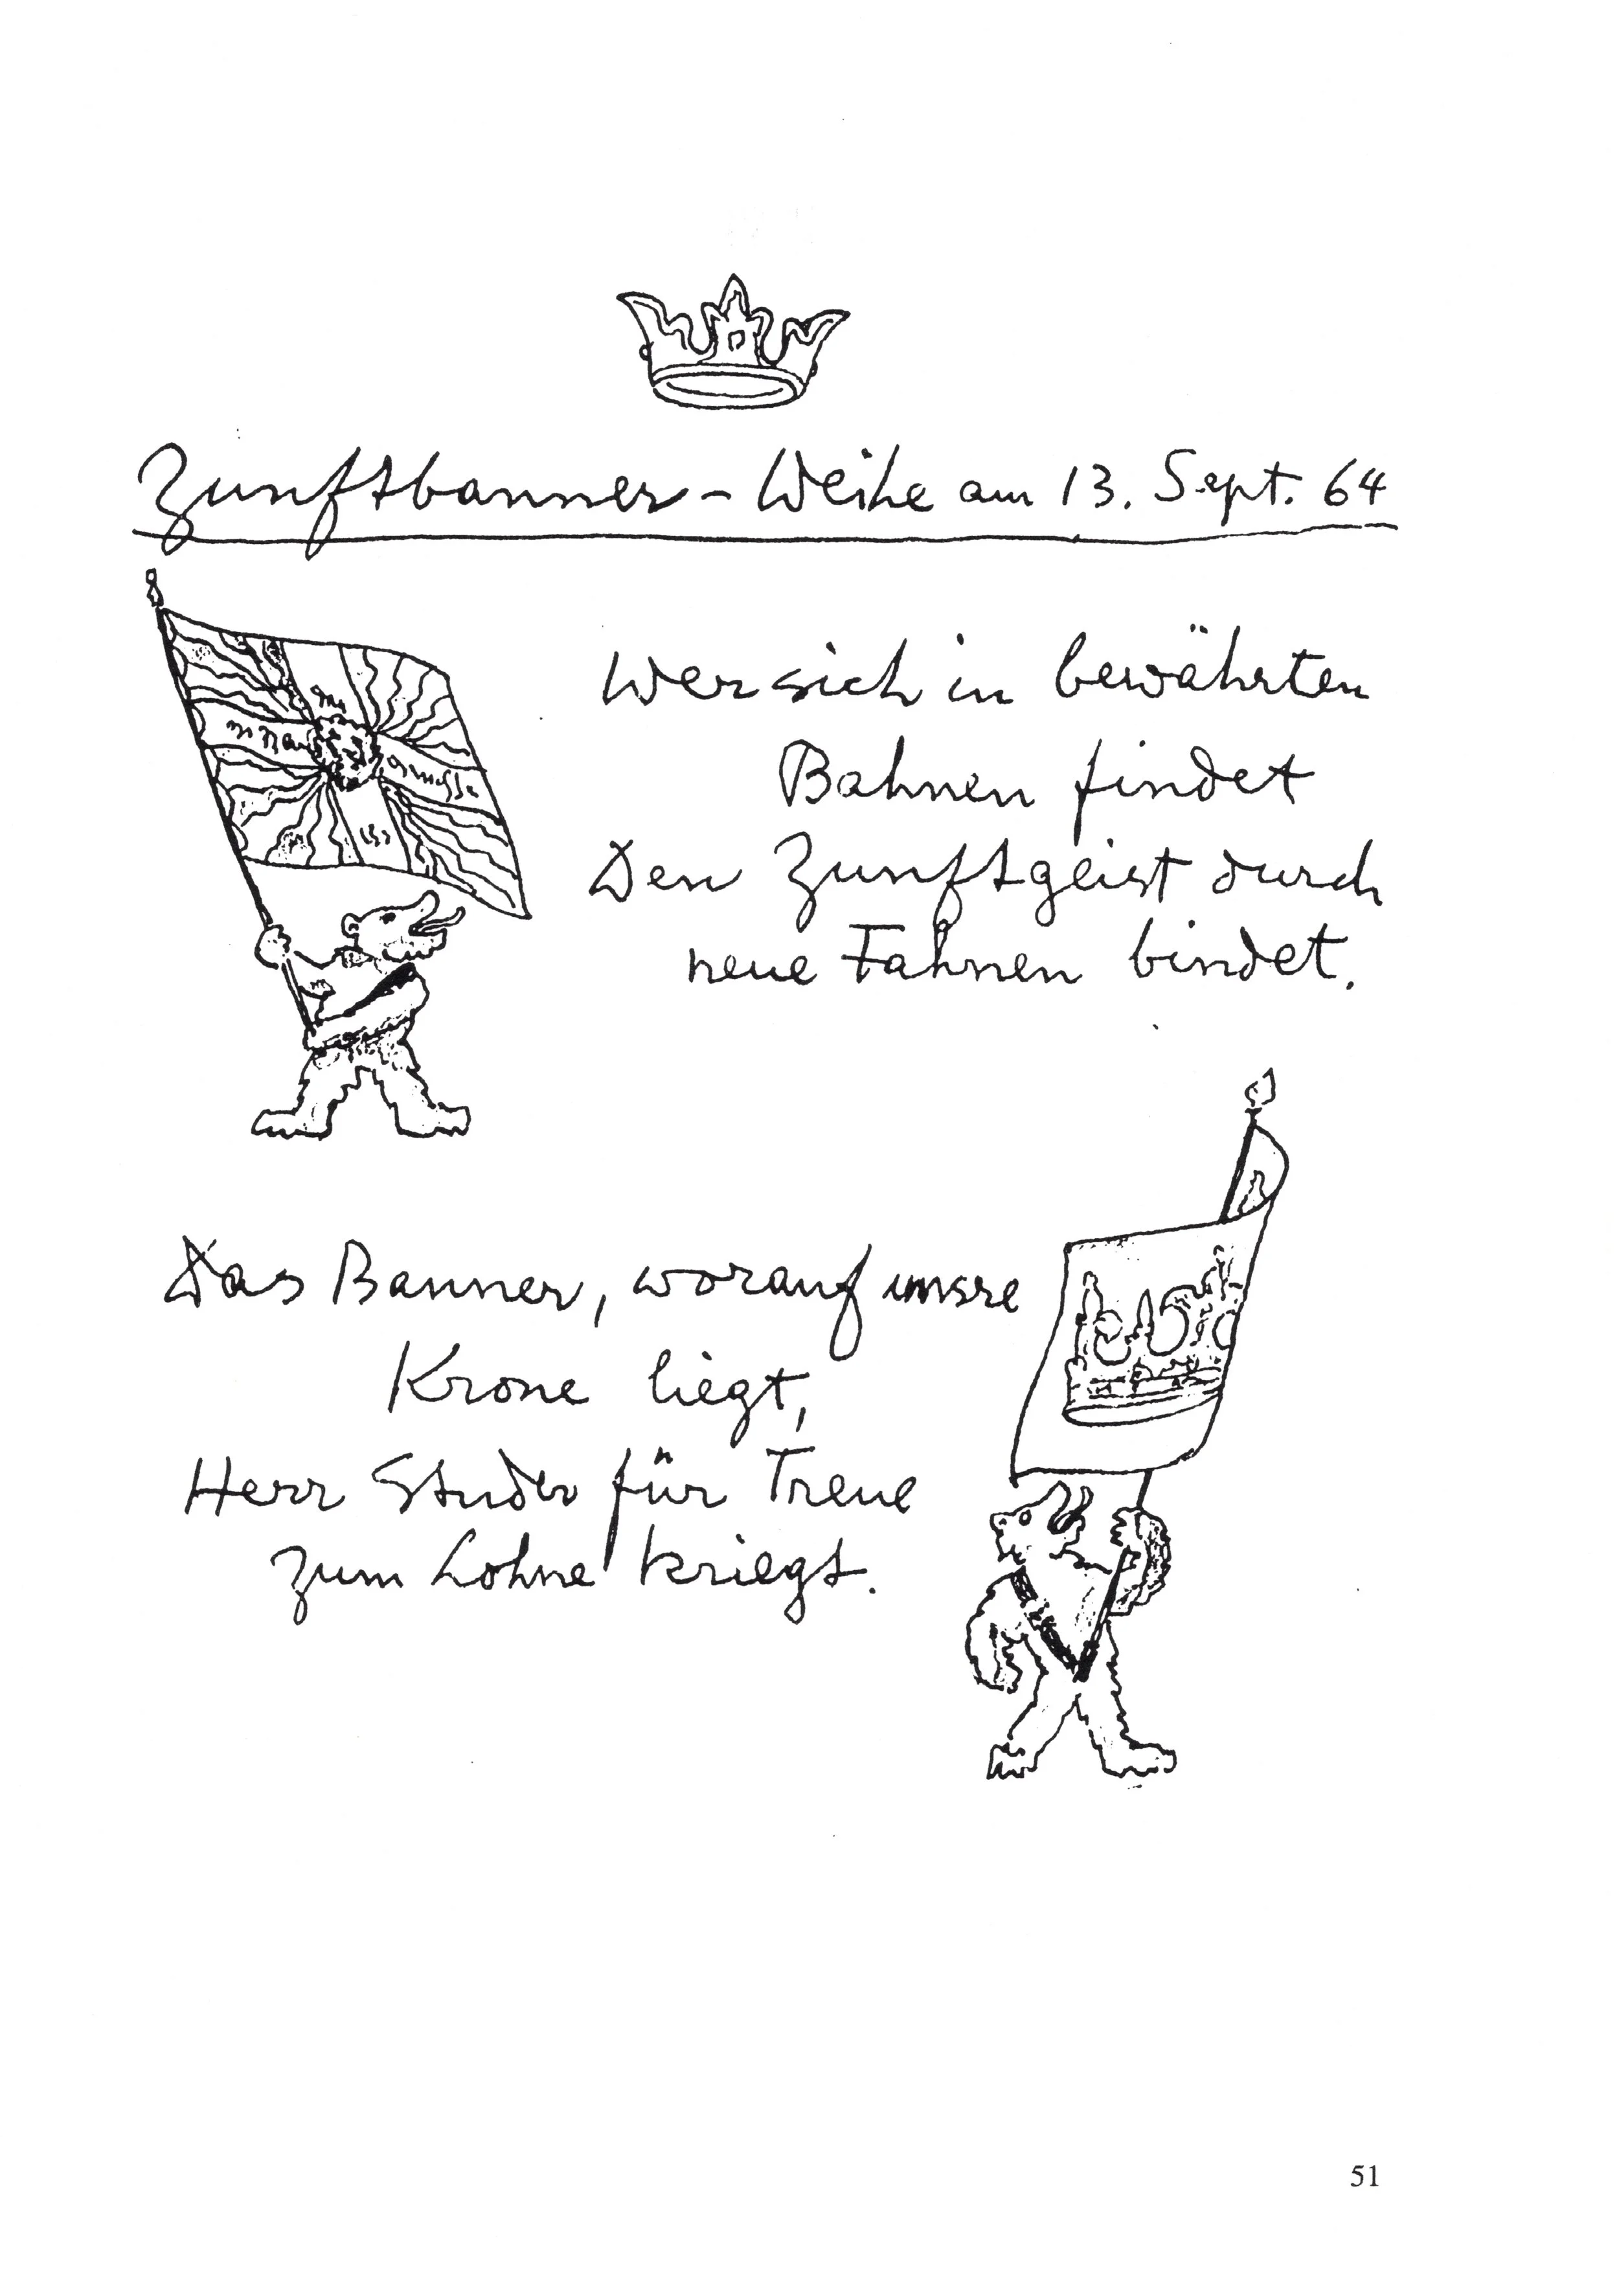 Zunftbanner-Weihe am 13. Sept. 64
Wer sich in bewährten
Bahnen findet
Den Zunftgeist durch
neue Fahnen bindet.
Das Banner, worauf unsre
Krone liegt,
Herr Studer für Treue
zum Lohne kriegt.
51